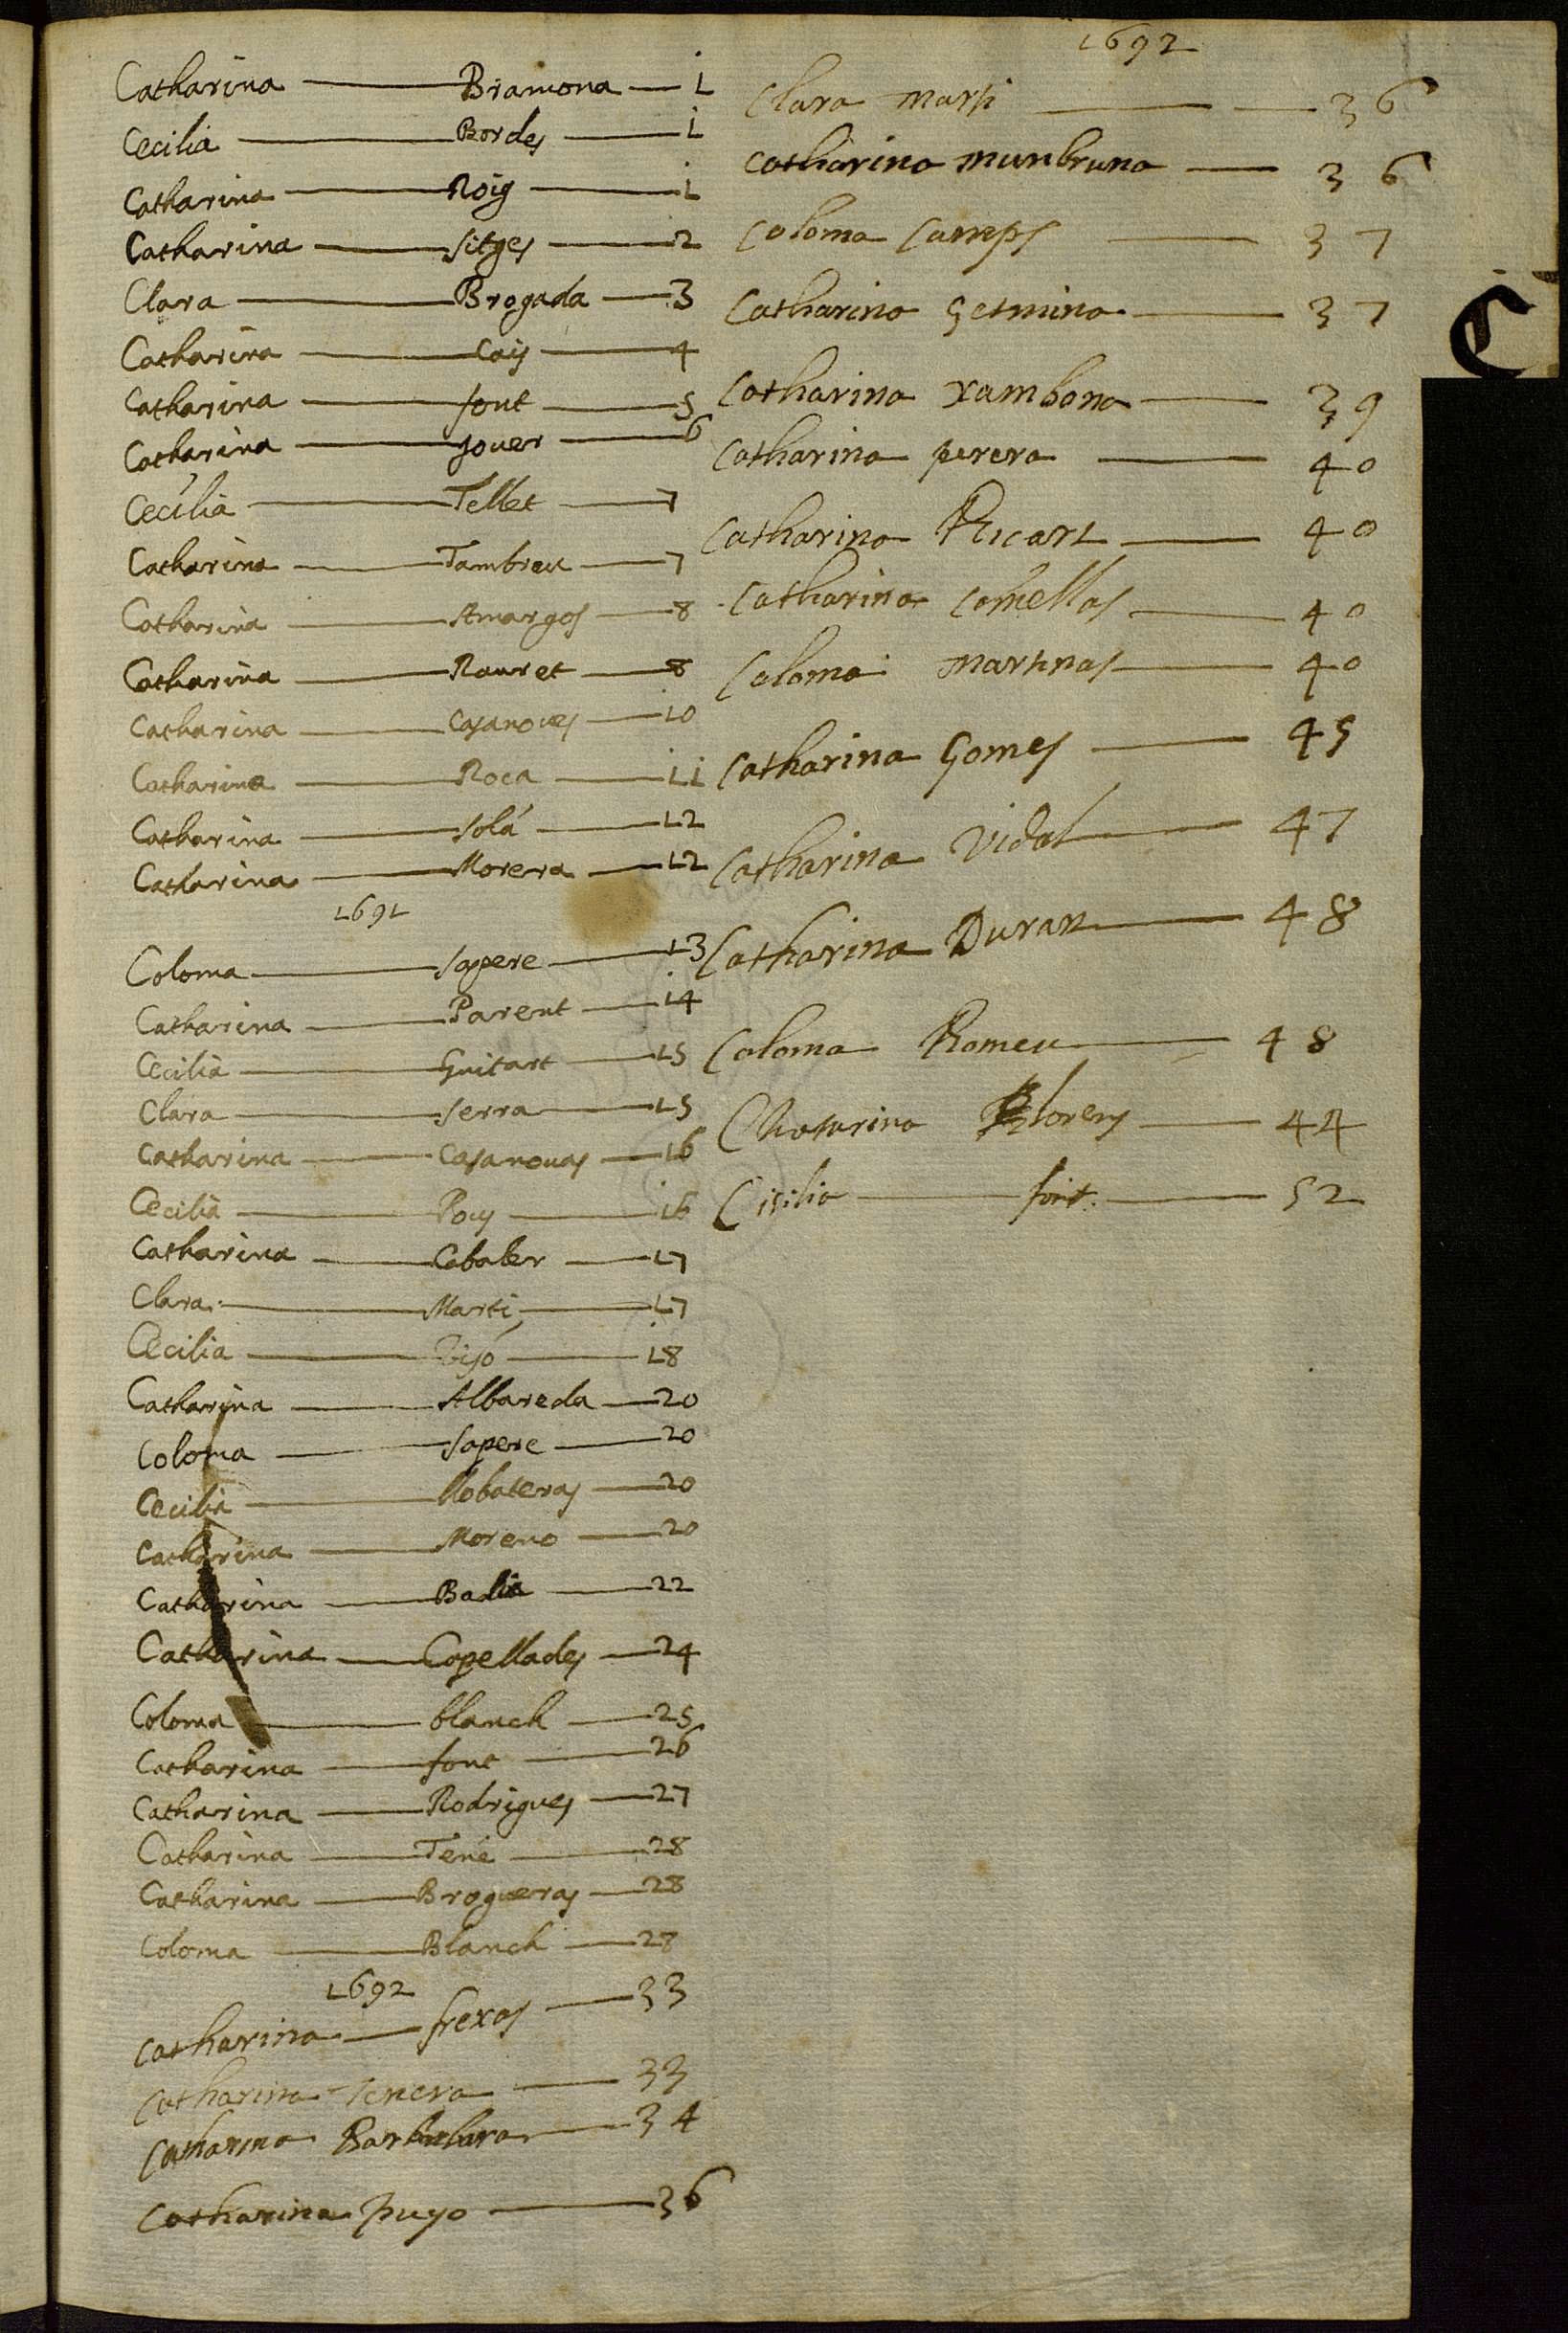 Catharina — Bramona — 1
Cecilia — Bordes — 1
Catharina — Roig — 1
Catharina — sitges — 2
Clara — Brogada — 3
Catharina — Cais — 4
Catharina — font — 5
Catharina — jover — 6
Cecilia — Tellet — 7
Catharina — Tambreu — 7
Catharina — Amargos — 8
Catharina — Rauret — 8
Catharina — Casanoves — 10
Catharina — Roca — 11
Catharina — solá — 12
Catharina — Morera — 12
1691
Coloma — sapere — 13
Catharina — Parent — 14
Cecilia — Guitart — 15
Clara — serra — 15
Catharina — Casanouas — 16
Cecilia — Pouy — 16
Catharina — Cabaler — 17
Clara — Marti — 17
Cecilia — — 18
Catharina — Albareda — 20
Coloma — sapere — 20
Cecilia — llobateras — 20
Catharina — Moreno — 20
Catharina — Badia — 22
Catharina — Copellades — 24
Coloma — blanch — 25
Catharina — font — 26
Catharina — Rodrigues — 27
Catharina — Tené — 28
Catharina — Brogueras — 28
Coloma — Blanch — 28
1692
Catharina — frexas — 33
Catharina — 33
Catharina — 34
Catharina puyo — 36
1692
Clara marti — 36
Catharina munbruna — 36
Coloma Camps — 37
Catharina Germina — 37
Catharina xambona — 39
Catharina perera — 40
Catharina Ricart — 40
Catharina Comellas — 40
Coloma martinas — 40
Catharina Gomes — 45
Catharina Vidal — 47
Catharina Duran — 48
Coloma Romeu — 48
Chatarina llorens — 44
Cisilia — font — 52
C